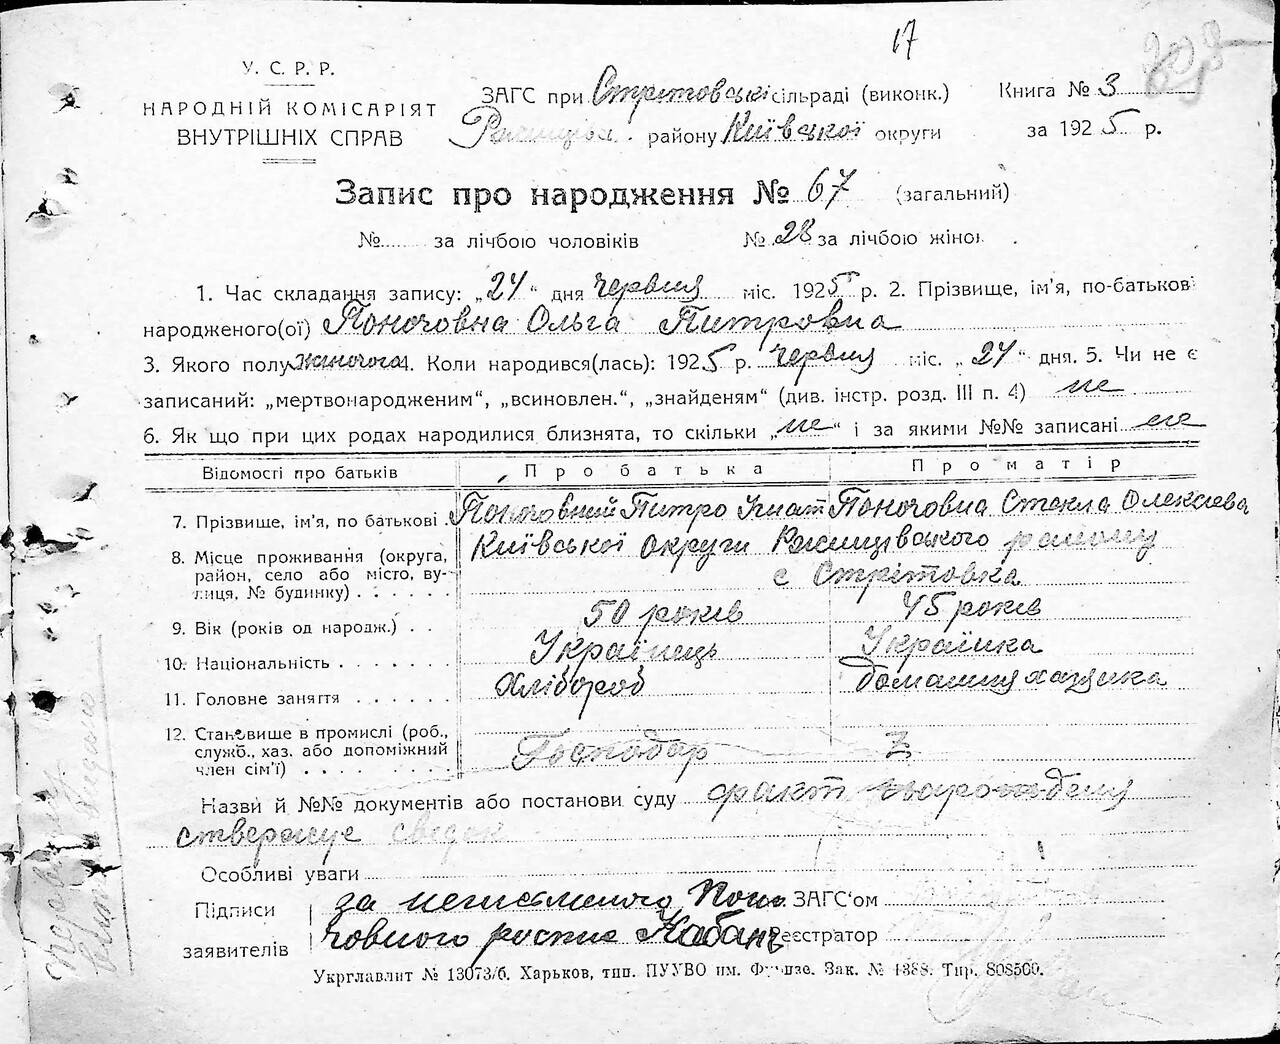 17
У. С. Р. Р.
НАРОДНІЙ КОМІСАРІЯТ
ВНУТРІШНІХ СПРАВ
ЗАГС при Стрітовські сільраді (виконк.)
району Київської округи
Книга № 3
за 1925 р.
Запис про народження № 67 (загальний)
№ за лічбою чоловіків № 28 за лічбою жінок
1. Час складання запису: „24“ дня червня міс. 1925 р. 2. Прізвище, ім'я, по-батькові
народженого(ої) Поночовна Ольга Питровна
3. Якого полу жиночога 4. Коли народився(лась): 1925 р. червня міс. „24“ дня. 5. Чи не є
записаний: „мертвонародженим“, „всиновлен.“, „знайденям“ (див. інстр. розд. III п. 4) не
6. Як що при цих родах народилися близнята, то скільки „не“ і за якими №№ записані не
Відомості про батьків Про батька Про матір
7. Прізвище, ім'я, по батькові Поночовний Питро Игнат Поночовна Стекла Олексіева
8. Місце проживання (округа, район, село або місто, вулиця, № будинку) Київської Округи Ржищівського району
с Стрітовка
9. Вік (років од народж.) 50 років 45 років
10. Національність Українець Українка
11. Головне заняття Хлібороб домашня хазяйка
12. Становище в промислі (роб., служб., хаз. або допоміжний член сім'ї) Господар
Назви й №№ документів або постанови суду факт
ствержує свідок
Особливі уваги
Підписи за неписьмного Поно
заявителів човного роспис Кабанц
ЗАГС'ом
Реєстратор
Укрглавлит № 13073/б. Харьков, тип. ПУУВО им. Фрунзе. Зак. № 1388. Тир. 808500.